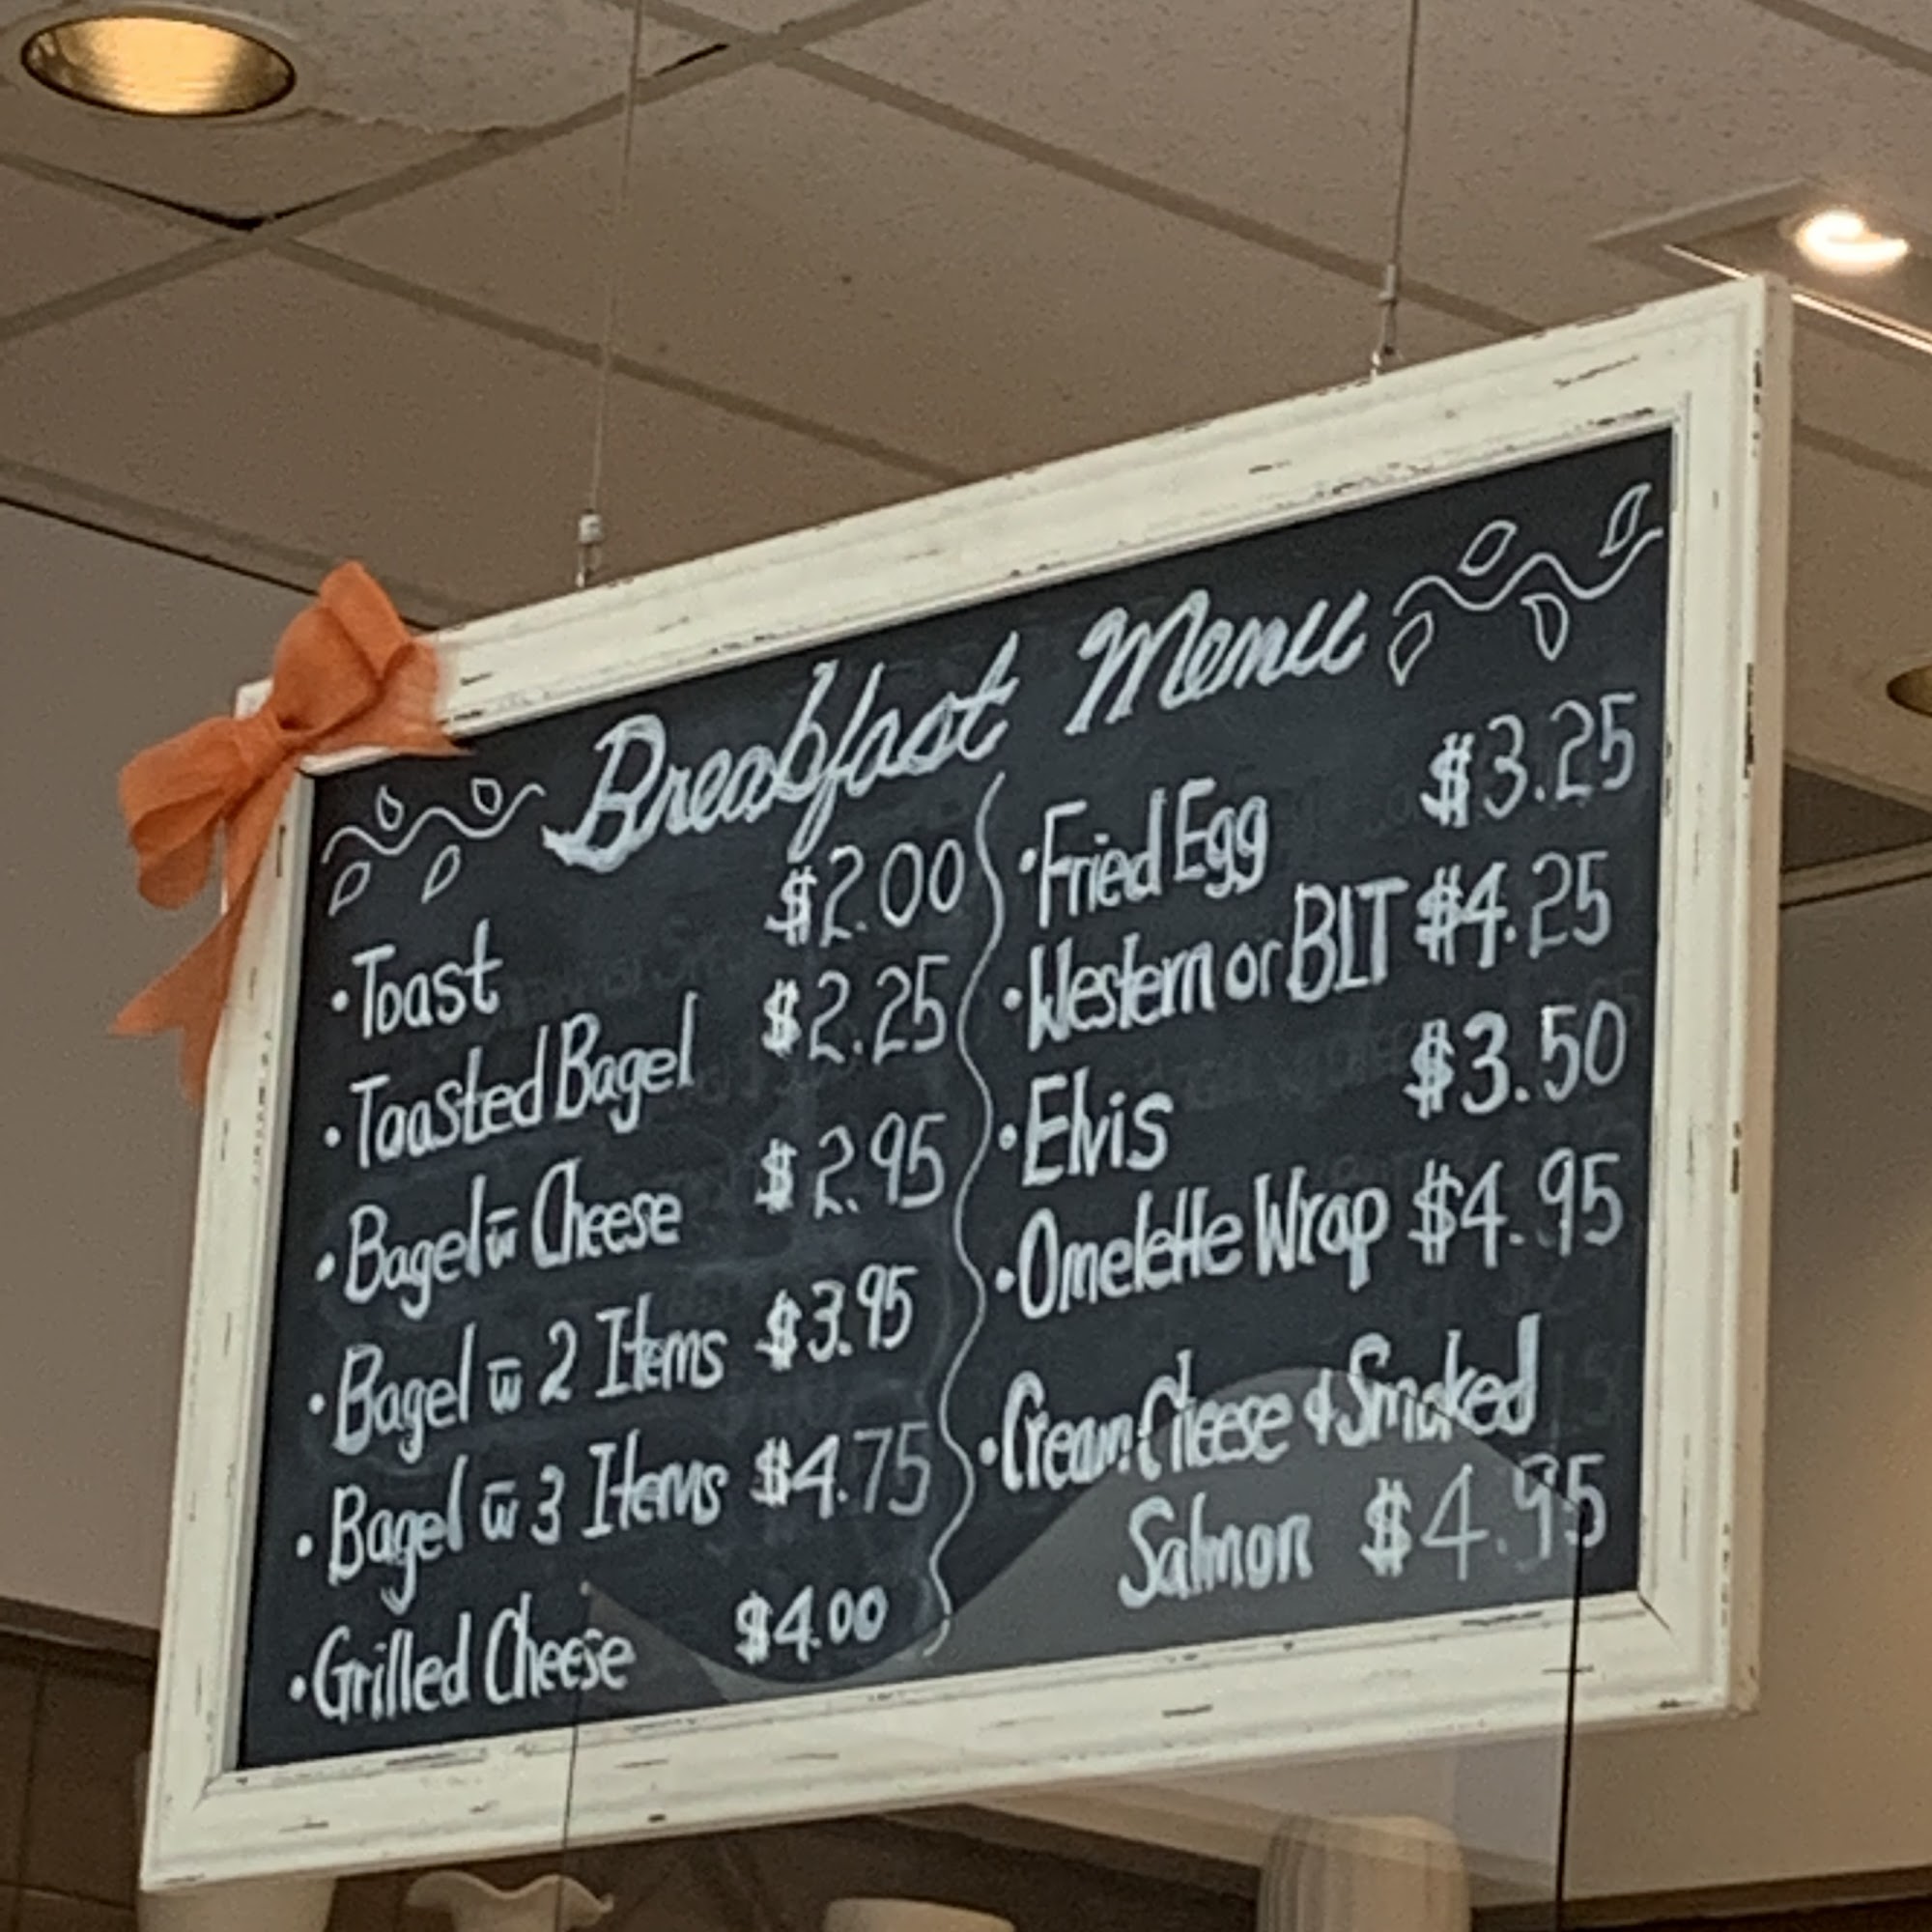 Breakfast Menu
• Toast $2.00
• Toasted Bagel $2.25
• Bagel w̅ Cheese $2.95
• Bagel w̅ 2 Items $3.95
• Bagel w̅ 3 Items $4.75
• Grilled Cheese $4.00
• Fried Egg $3.25
• Western or BLT $4.25
• Elvis $3.50
• Omelette Wrap $4.95
• Cream Cheese & Smoked
Salmon $4.95